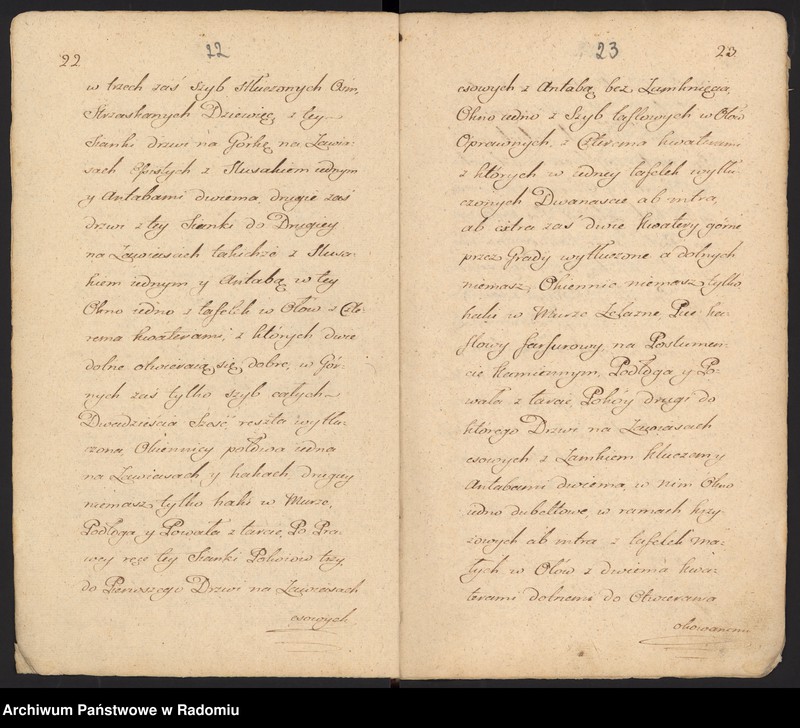 22
22
w trzech zaś Szyb stłuczonych Osm,
Strzaskanych Dziewięć z tey
Sianki drzwi na Górkę na Zawia-
sach z Skuraklem iednym
y Antabami dwiema, drugie zaś
drzwi z tey Sianki do Drugiey
na Zawiasach takichże z
iednym y Antabą w tey
Okno iedno z tafelek w Ołów z Czte-
rema kwaterami, z których dwie
dolne otwieraią się dobre, w Gór-
nych zaś tylko szyb całych
Dwadzieścia Sześć, reszta wytłu-
czona, Okiennicy połowa iedna
na Zawiasach y hakach, drugiey
niemasz, tylko haki w Murze,
Podłoga y Powała z tarcic, Po Pra-
wey ręce tey Sianki Pokoiów trzy,
do Pierwszego Drzwi na Zawiasach
esowych
23
23
esowych z Antabą bez Zamknięcia,
Okno iedno z Szyb taflowych w Ołów
Oprawnych, z Czterma kwaterami
z których w iedney tafelek wytłu-
czonych Dwanascie ab intra,
ab extra zaś dwie kwatery górne
przez Grady wytłuczone a dolnych
niemasz, Okiennic niemasz, tylko
haki w Murze Żelazne, Piec ka-
flowy farfurowy, na Postumen-
cie kamiennym, Podłoga y Po-
wała z tarcic, Pokóy drugi do
którego Drzwi na Zawiasach
esowych z Zamkiem kluczem y
Antabami dwiema, w nim Okno
iedno dubeltowe, w ramach krzy-
żowych ab intra z tafelek ma-
łych w Ołów z dwiema kwa-
terami dolnemi do Otwierania
okowanemi
Archiwum Państwowe w Radomiu